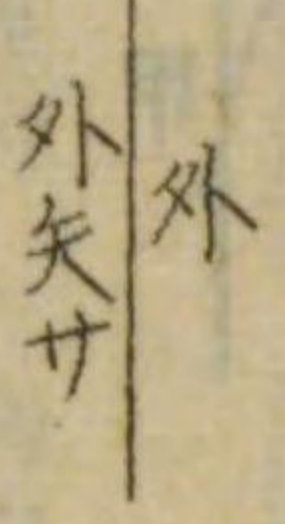 外
外矢サ